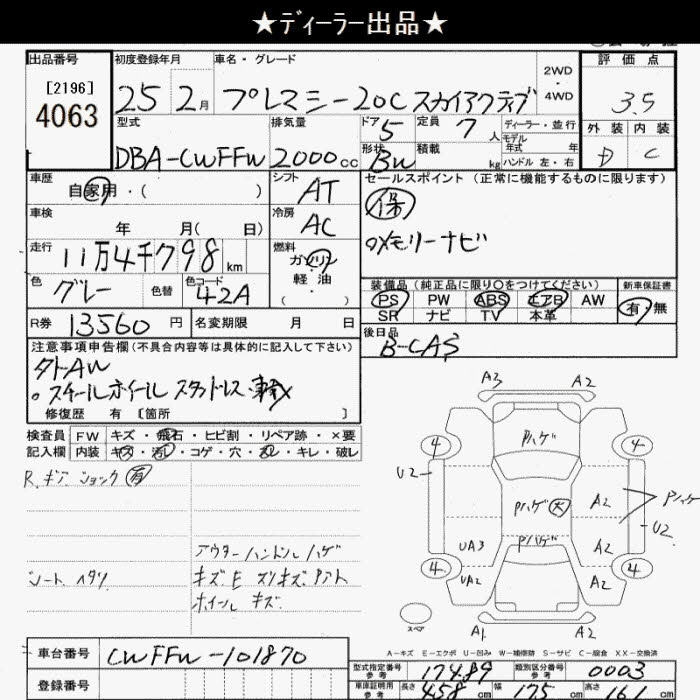 ★ディーラー出品★
出品番号 初度登録年月 車名・グレード 評価点
[2196]
4063
25年 2月 プレマシー20C スカイアクティブ 2WD・4WD 3.5
型式 排気量 ドア 5 定員 7人 ディーラー・並行 外装 内装
DBA-CWFFW 2000cc 形状 BW 積載 kg モデル年式 年 ハンドル 左・右 D C
車歴 シフト セールスポイント(正常に機能するものに限ります)
自家用・( ) AT 保
車検 冷房
年 月( 日) AC メモリーナビ
走行 燃料
11万4千798km ガソリン
軽・油
色 グレー 色替 色コード 42A 装備品(純正品に限り○をつけてください) 新車保証書
PS PW ABS エアB AW 有・無
SR ナビ TV 本革
R券 13560円 名変期限 月 日 後日品
B-CAS
注意事項申告欄(不具合内容等は具体的に記入して下さい)
タトAW
○スチールホイール スタッドレス
修復歴 有 [箇所 ]
検査員 FW キズ・飛石・ヒビ割・リペア跡・×要
記入欄 内装 キズ・汚レ・コゲ・穴・ キレ・破レ
R.ギアショック 有
アウターハンドルハゲ
シート ヘタリ キズE スリキズ
ホイール キズ
A3 A2
Pハゲ
4 4
U2 Pハゲ 大 A2 Pハゲ
U2
UA3 Pハゲ A2
4 UA2 A2 4
スペア A1 A2
A-キズ E-エクボ U-凹み W-補修跡 S-サビ C-腐食 XX-交換済
車台番号 CWFFW-101870
登録番号
型式指定番号 参考 17489 類別区分番号 参考 0003
車庫証明用 参考 長さ 458cm 幅 175cm 高さ